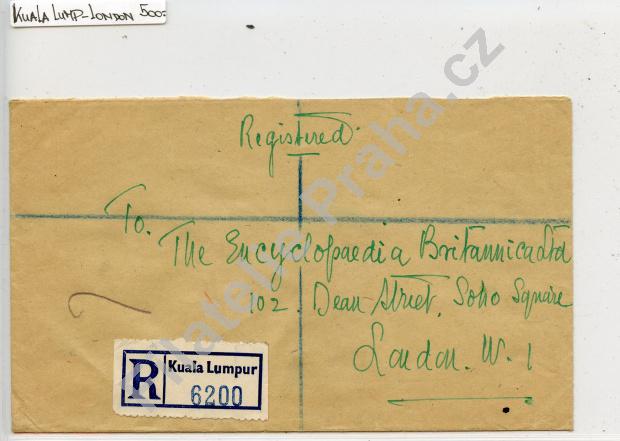 KUALA LUMP-LONDON 500-
Registered.
To.
The Encyclopaedia Britannica Ltd
102. Dean Street, Soho Square
London. W. 1
R Kuala Lumpur
6200
Filatelie Praha.cz